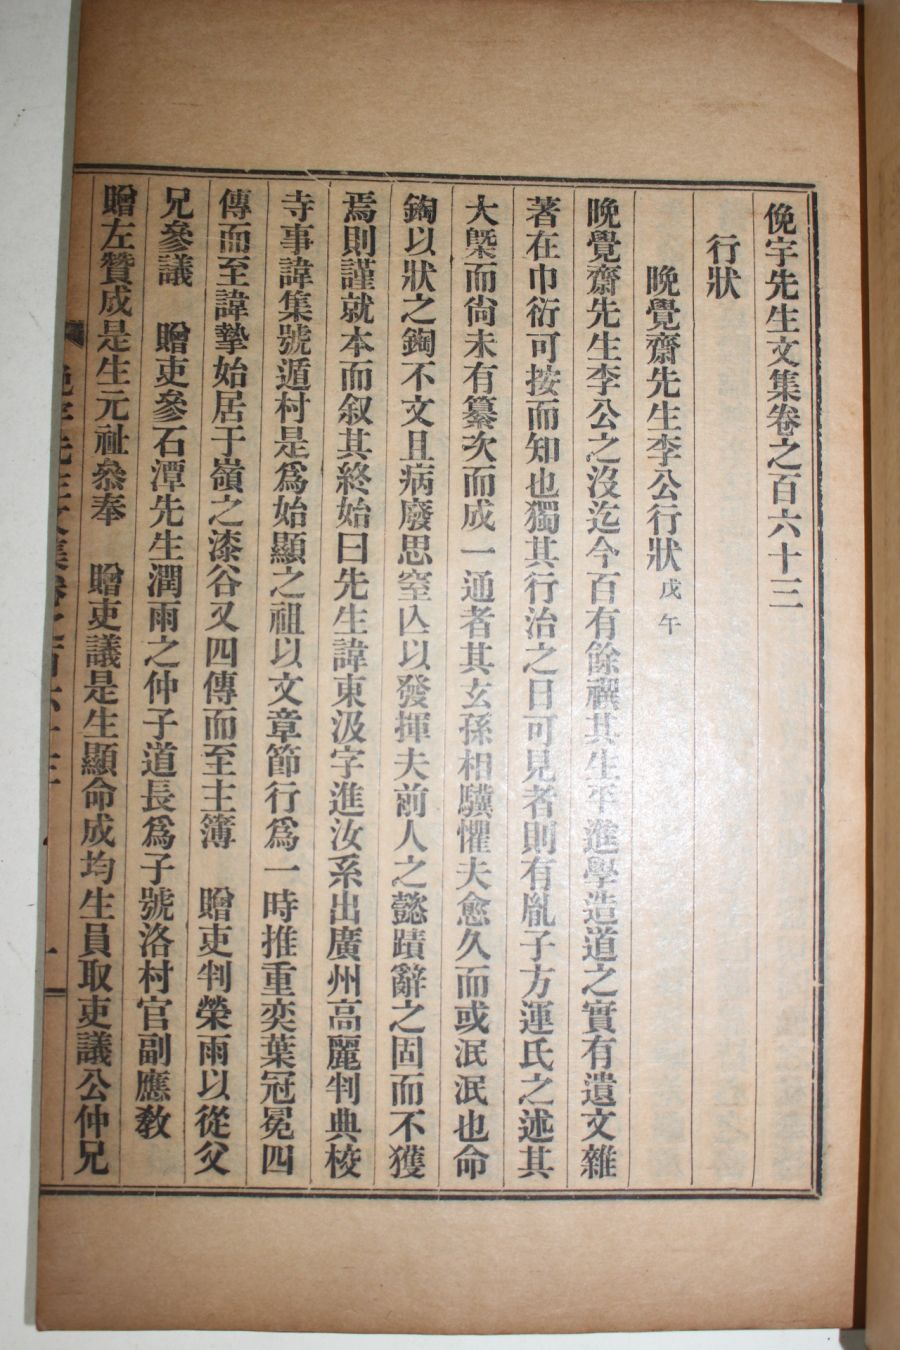 俛宇先生文集卷之百六十三
行狀
晚覺齋先生李公行狀 戊午
晚覺齋先生李公之沒迄今百有餘禩其生平進學造道之實有遺文雜
著在巾衍可按而知也獨其行治之日可見者則有胤子方運氏之述其
大槩而尙未有纂次而成一通者其玄孫相驥懼夫愈久而或泯泯也命
鋾以狀之鋾不文且病廢思窒亾以發揮夫前人之懿蹟辭之固而不獲
焉則謹就本而叙其終始曰先生諱東汲字進汝系出廣州高麗判典校
寺事諱集號遁村是爲始顯之祖以文章節行爲一時推重奕葉冠冕四
傳而至諱摯始居于嶺之漆谷又四傳而至主簿 贈吏判榮雨以從父
兄參議 贈吏參石潭先生潤雨之仲子道長爲子號洛村官副應敎
贈左贊成是生元祉叅奉 贈吏議是生顯命成均生員取吏議公仲兄